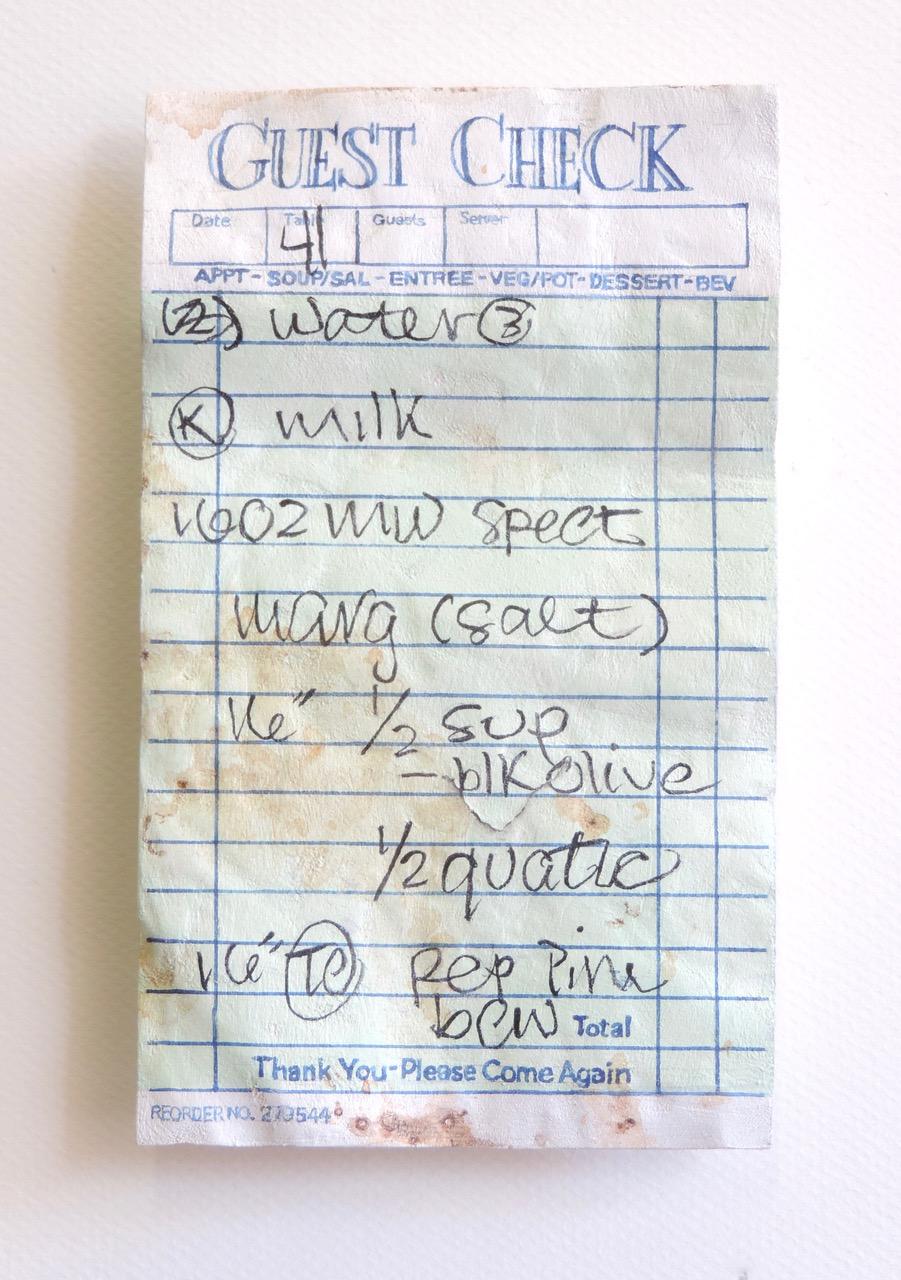 GUEST CHECK
Date Table Guests Server
41
APPT - SOUP/SAL - ENTREE - VEG/POT - DESSERT - BEV
(2) water 3
K milk
16oz MW spect
marg (salt)
16" 1/2 sup
- blk olive
1/2 quattc
16" TO pep pine
bcw Total
Thank You - Please Come Again
REORDER NO. 279544